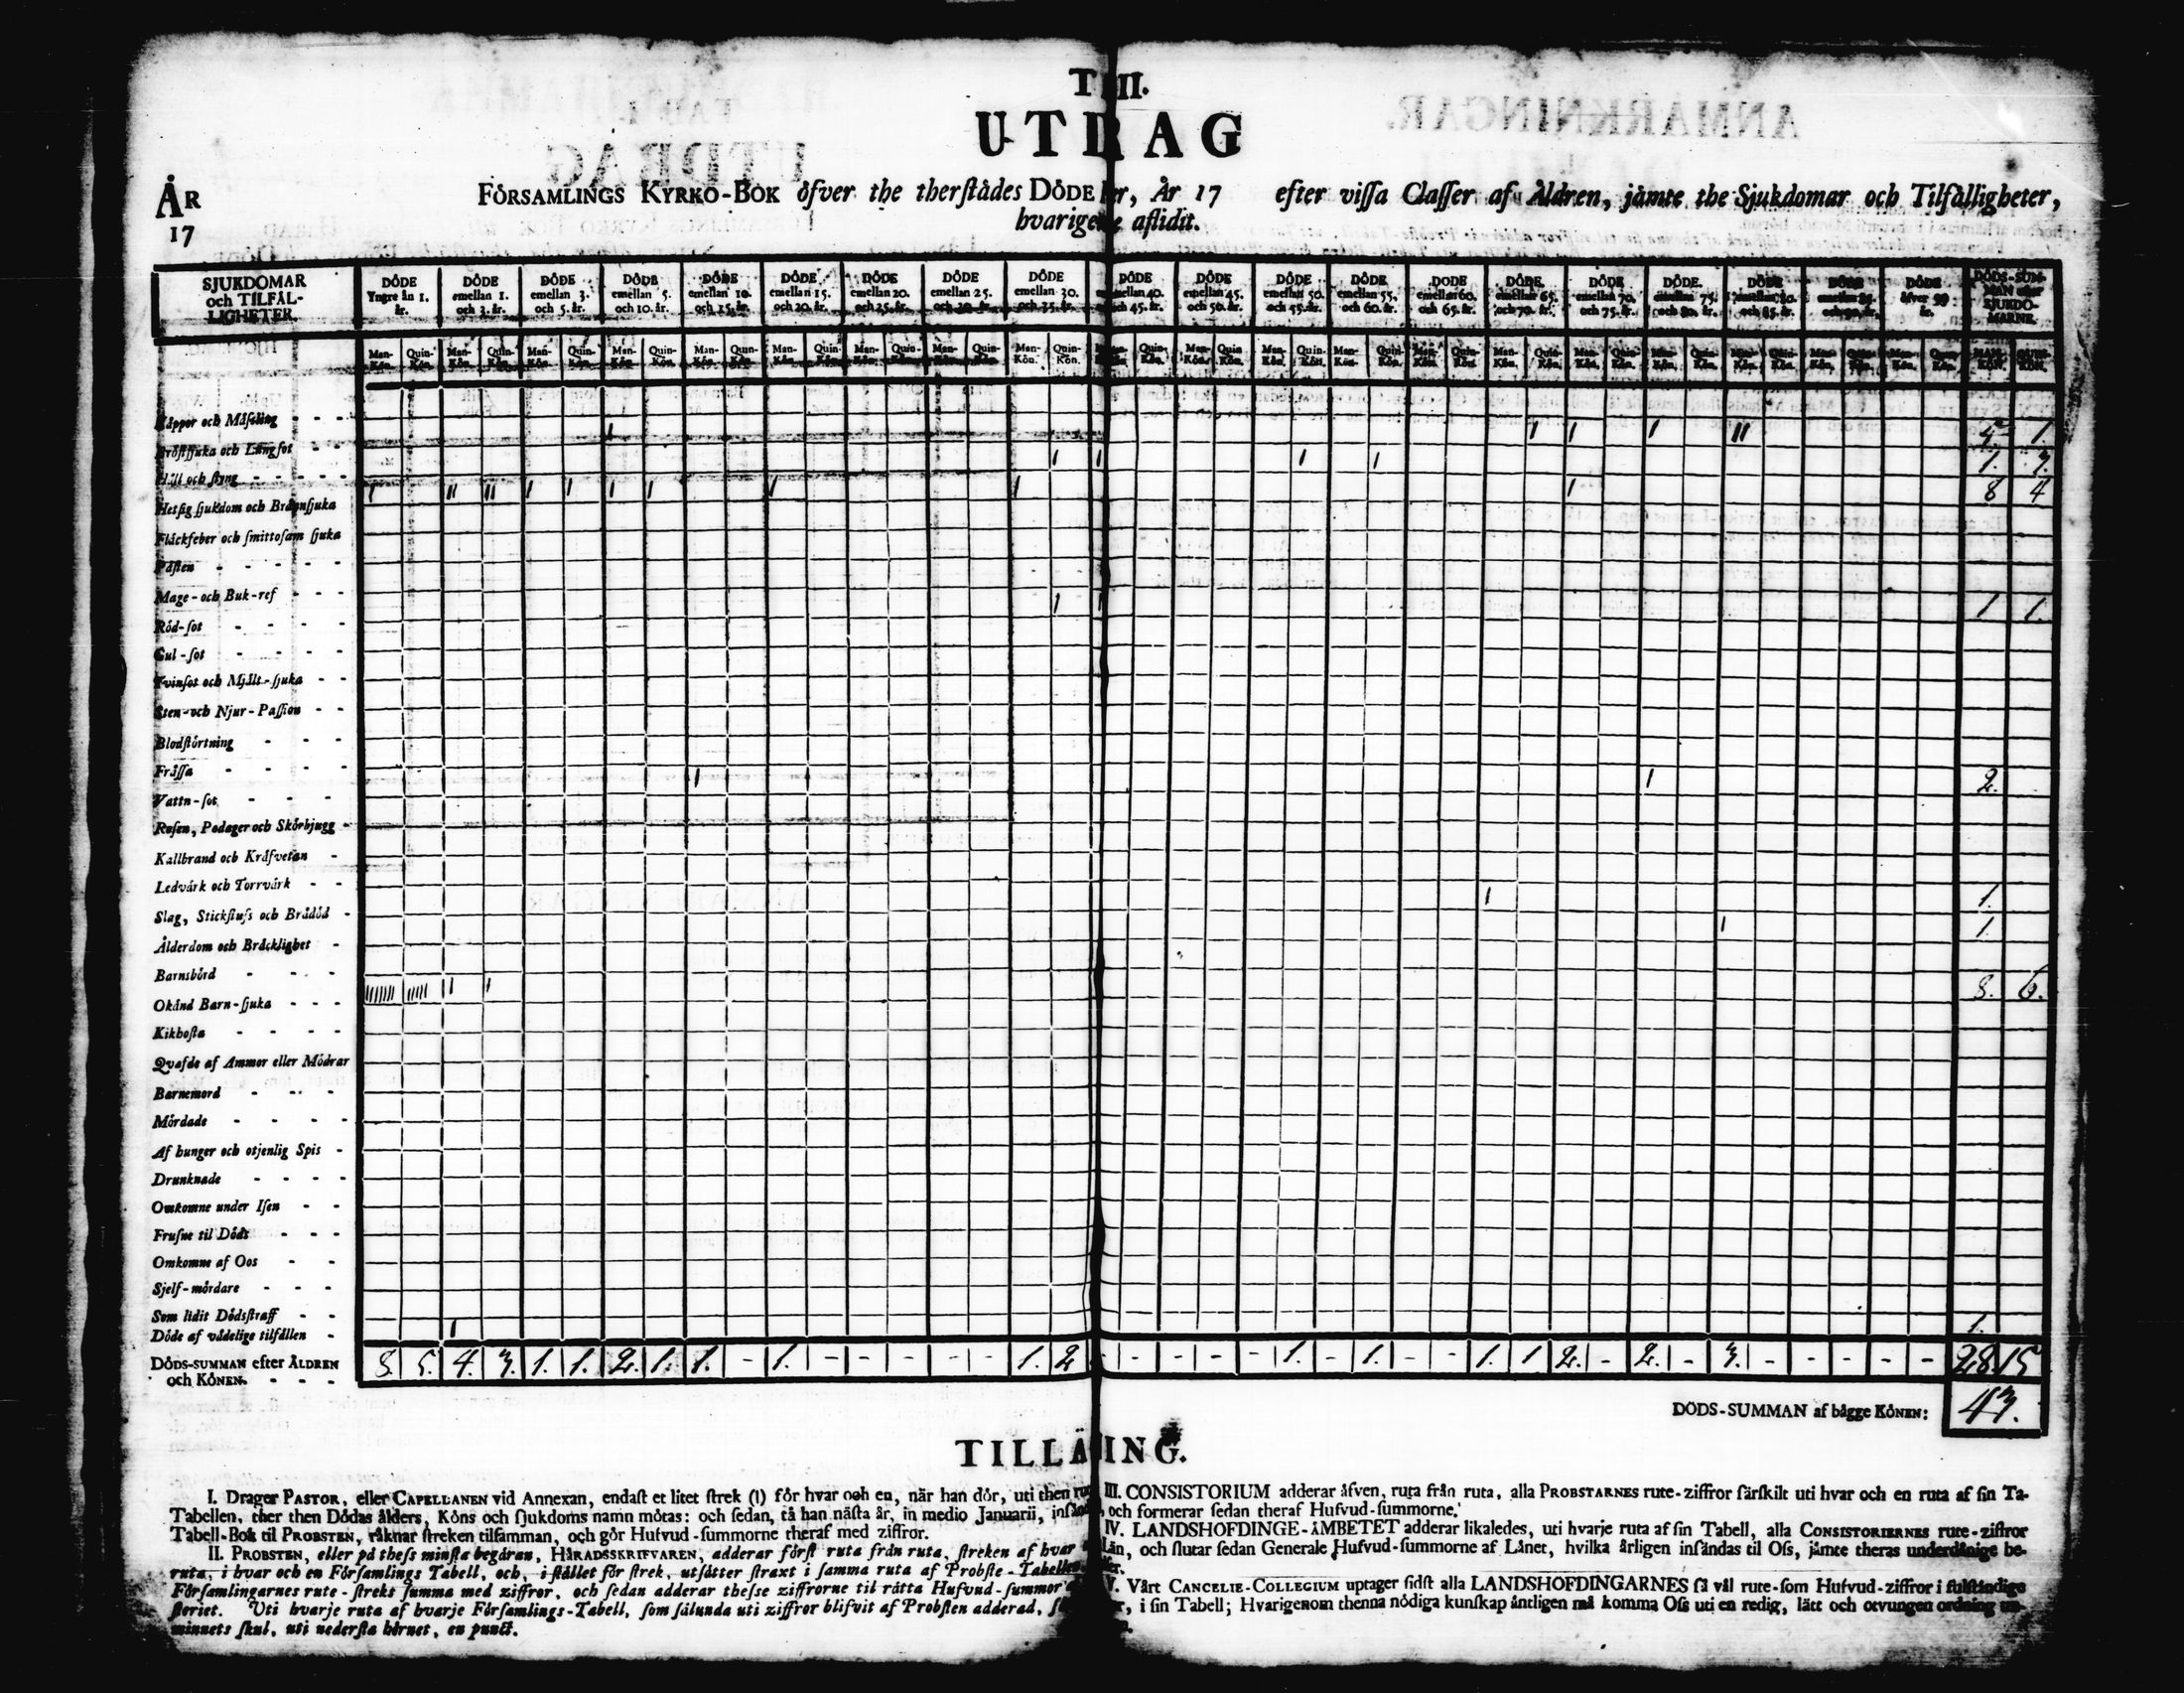 T II.
UTDRAG
ÅR
17
FÖRSAMLINGS KYRKO-BOK öfver the therstädes DÖDE er, År 17 efter vissa Classer af Åldren, jämte the Sjukdomar och Tilfälligheter,
hvarige e aflidit.
SJUKDOMAR och TILFÄL-LIGHETER.
DÖDE Yngre än 1. år.
DÖDE emellan 1. och 3. år.
DÖDE emellan 3. och 5. år.
DÖDE emellan 5. och 10. år.
DÖDE emellan 10. och 15. år.
DÖDE emellan 15. och 20. år.
DÖDE emellan 20. och 25. år.
DÖDE emellan 25. och 30. år.
DÖDE emellan 30. och 35. år.
DÖDE emellan 40. och 45. år.
DÖDE emellan 45. och 50. år.
DÖDE emellan 50. och 55. år.
DÖDE emellan 55. och 60. år.
DÖDE emellan 60. och 65. år.
DÖDE emellan 65. och 70. år.
DÖDE emellan 70. och 75. år.
DÖDE emellan 75. och 80. år.
DÖDE emellan 80. och 85. år.
DÖDE öfver 90 år.
DÖDS-SUMMAN efter SJUKDOMARNE.
Man-Kön. Quin-Kön.
Kåppor och Måsling
Bröstsjuka och Lungsot 4. 1.
Håll och styng 1. 3.
Hetsig sjukdom och Brännsjuka 8 4
Fläckfeber och smittosam sjuka
Pästen
Mage- och Buk-ref
Röd-sot 1 1.
Gul-sot
Tvinsot och Mjält-sjuka
Sten- och Njur-Passion
Blodstörtning
Frässa
Vattn-sot 2.
Rosen, Podager och Skörbjugg
Kallbrand och Kräfvetan
Ledvärk och Torrvärk
Slag, Stickfluss och Brådöd 1.
Ålderdom och Bräcklighet 1.
Barnsbörd
Okänd Barn-sjuka 8. 6.
Kikhosta
Qvafde af Ammor eller Mödrar
Barnemord
Mördade
Af hunger och otjenlig Spis
Drunknade
Omkomne under Isen
Frusne til Döds
Omkomne af Oos
Sjelf-mördare
Som lidit Dödsstraff
Döde af vådelige tilfällen 1.
DÖDS-SUMMAN efter ÅLDREN och KÖNEN. 8. 5. 4. 3. 1. 1. 2. 1. 1. - 1. - - - - - 1. 2 - - - - 1. - 1. - - 1. 1 2. - 2. - 3. - - - - - 28 15
DÖDS-SUMMAN af bägge KÖNEN: 43.
TILLÄ ING.
I. Drager PASTOR, eller CAPELLANEN vid Annexan, endast et litet strek (1) för hvar och en, när han dör, uti then ru
Tabellen, ther then Dödas ålders, Köns och sjukdoms namn mötas: och sedan, tå han nästa år, in medio Januarii, insän
Tabell-Bok til PROBSTEN, räknar streken tilsamman, och gör Hufvud-summorne theraf med ziffror.
II. PROBSTEN, eller på thess minsta begäran, HÄRADSSKRIFVAREN, adderar först ruta från ruta, streken af hvar
ruta, i hvar och en Församlings Tabell, och, i stället för strek, utsätter straxt i samma ruta af Probste-Tabellen
Församlingarnes rute-streks summa med ziffror, och sedan adderar thesse ziffrorne til rätta Hufvud-summor
steriet. Uti hvarje ruta af hvarje Församlings-Tabell, som sålunda uti ziffror blifvit af Probsten adderad,
minnets skul, uti nedersta hörnet, en punct.
III. CONSISTORIUM adderar äfven, ruta från ruta, alla PROBSTARNES rute-ziffror särskilt uti hvar och en ruta af sin Ta-
och formerar sedan theraf Hufvud-summorne.
IV. LANDSHÖFDINGE-ÄMBETET adderar likaledes, uti hvarje ruta af sin Tabell, alla CONSISTORIERNES rute-ziffror
Län, och slutar sedan Generale Hufvud-summorne af Länet, hvilka årligen insändas til Oss, jämte theras underdånige be-
V. Vårt CANCELIE-COLLEGIUM uptager sidst alla LANDSHÖFDINGARNES så väl rute-som Hufvud-ziffror i fulständige
, i sin Tabell; Hvarigenom thenna nödiga kunskap äntligen må komma Oss uti en redig, lätt och otvungen ordning